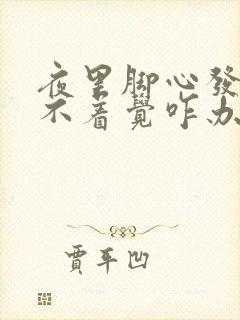 夜里脚心發
不着覺咋办
賈平凹